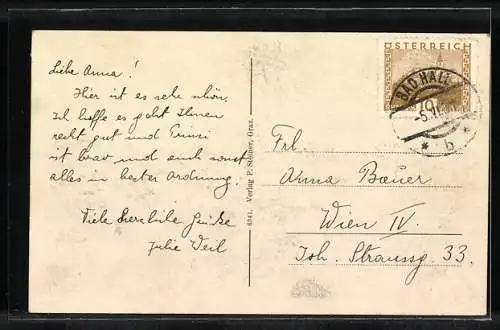 Liebe Anna!
Hier ist es sehr schön.
Ich hoffe es geht Ihnen
recht gut und
ist brav und auch sonst
alles in bester Ordnung.
Viele herzliche Grüße
Julie Weil
6341. Verlag P. Graz.
ÖSTERREICH
BAD HALL
* b *
Frl.
Anna Bauer
Wien IV.
Joh. Straussg. 33.